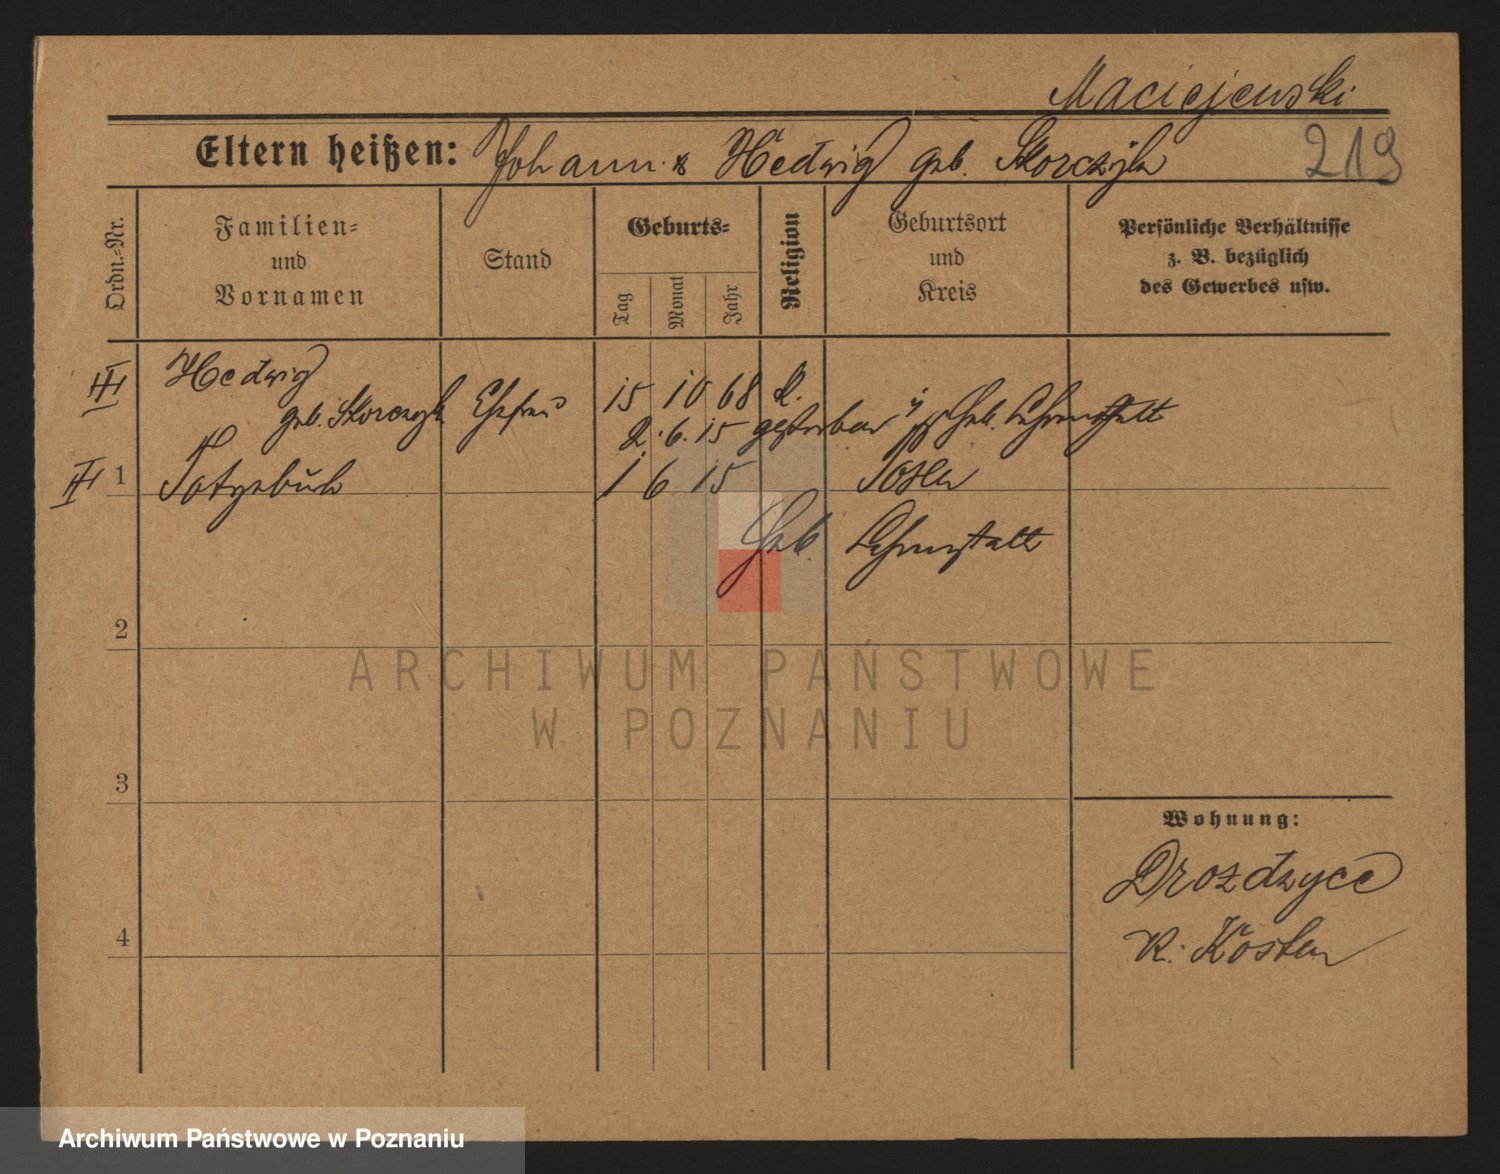 Maciejewski
Eltern heißen: Johann & Hedwig geb. Skorczyk
219
Ordn.=Nr.
Familien=
und
Vornamen
Stand
Geburts=
Tag
Monat
Jahr
Religion
Geburtsort
und
Kreis
Persönliche Verhältnisse
z. B. bezüglich
des Gewerbes usw.
III
Hedwig
geb. Skorczyk Ehefrau 15 10 68 K.
2. 6. 15 gestorben Heb. Lehranstalt
III 1 Totgeburt 1 6 15 Posen
Heb. Lehranstalt
2
3
4
Wohnung:
Drozdzyce
K. Kosten
ARCHIWUM PAŃSTWOWE
W POZNANIU
Archiwum Państwowe w Poznaniu